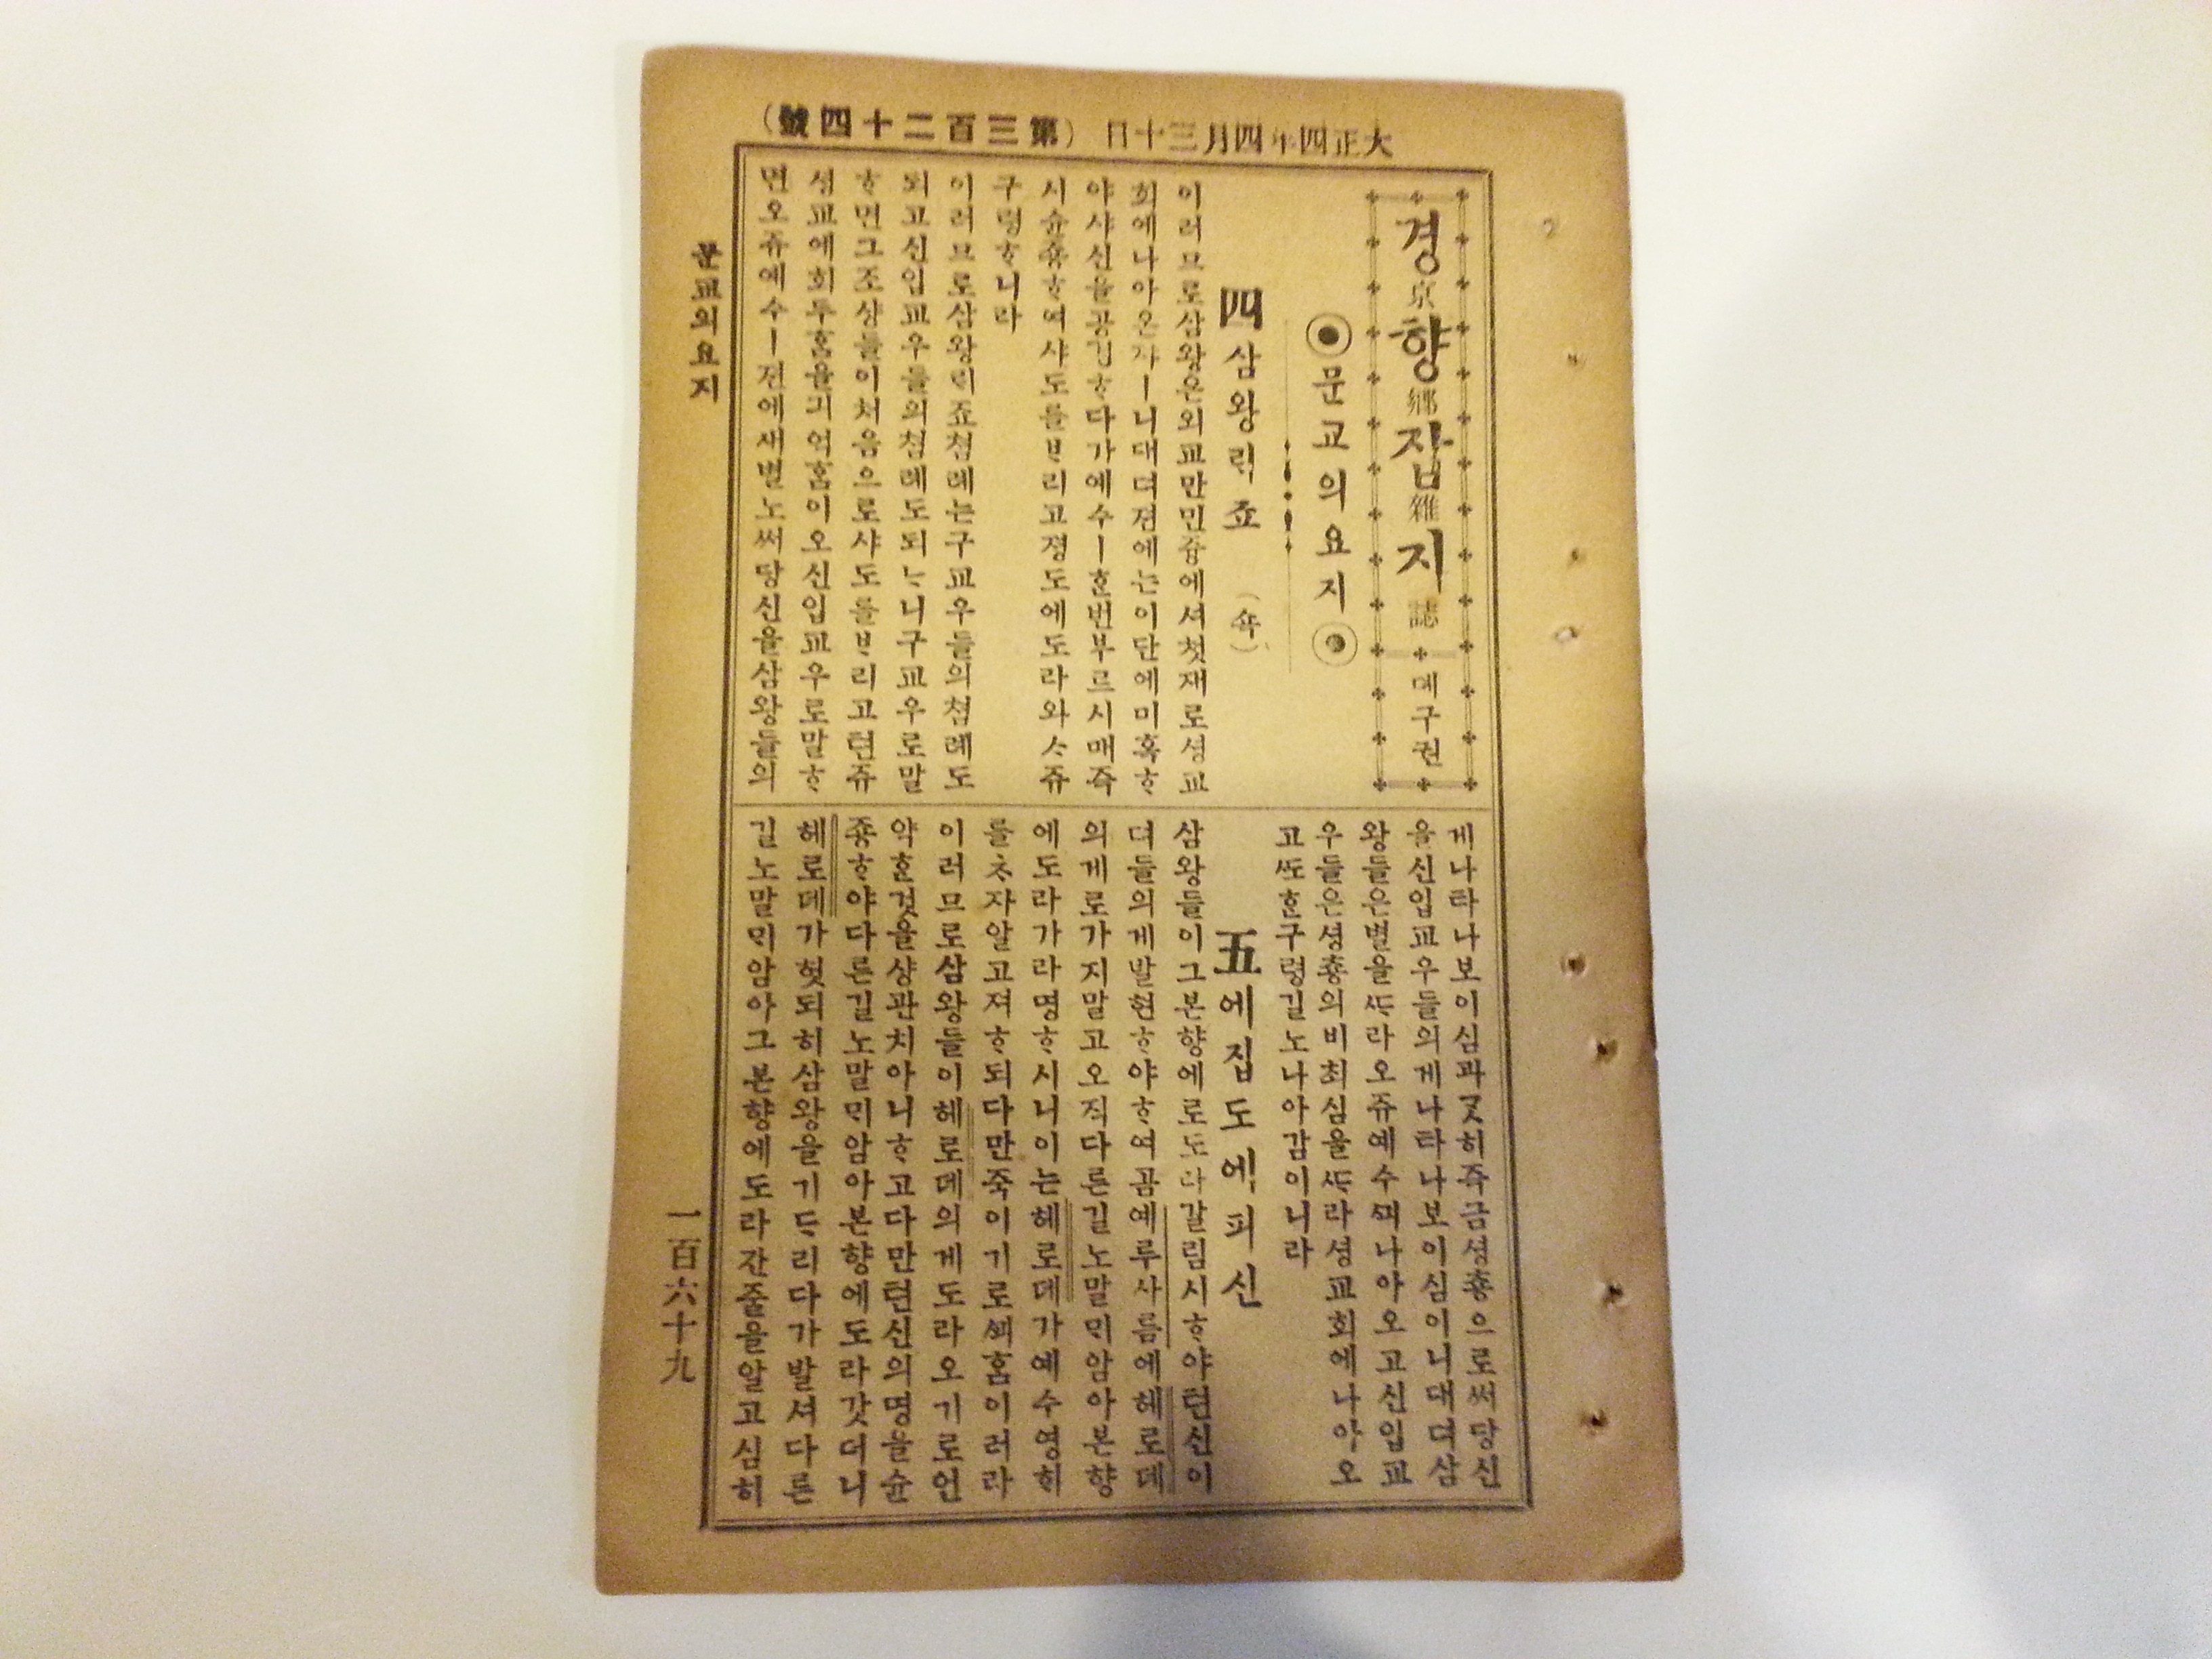 大正四年四月三十日 (第三百二十四號)
경京향鄕잡雜지誌 뎨구권
◉문교의요지◉
四 삼왕릭죠 (쇽)
이러므로삼왕은외교만민즁에셔첫재로셩교
회에나아온쟈ㅣ니대뎌젼에는이단에미혹ᄒᆞ
야샤신을공경ᄒᆞ다가예수ㅣᄒᆞᆫ번부르시매즉
시슌죵ᄒᆞ여샤도를ᄇᆞ리고졍도에도라와ᄉᆞ쥬
구령ᄒᆞ니라
이러므로삼왕릭죠쳠례는구교우들의쳠례도
되고신입교우들의쳠례도되ᄂᆞ니구교우로말
ᄒᆞ면그조샹들이처음으로샤도를ᄇᆞ리고텬쥬
셩교에회두홈을긔억홈이오신입교우로말ᄒᆞ
면오쥬예수ㅣ젼에새별노써당신을삼왕들의
게나타나보이심과ᄀᆞᆺ히즉금셩춍으로써당신
을신입교우들의게나타나보이심이니대뎌삼
왕들은별을ᄯᆞ라오쥬예수ᄭᅴ나아오고신입교
우들은셩춍의비최심을ᄯᆞ라셩교회에나아오
고ᄯᅩᄒᆞᆫ구령길노나아감이니라
五 에집도에피신
삼왕들이그본향에로도다갈림시ᄒᆞ야텬신이
뎌들의게발현ᄒᆞ야ᄒᆞ여곰예루사름에헤로데
의게로가지말고오직다른길노말믜암아본향
에도라가라명ᄒᆞ시니이는헤로데가예수영ᄒᆡ
를ᄎᆞ자알고져ᄒᆞ되다만죽이기로ᄭᅬ홈이러라
이러므로삼왕들이헤로데의게도라오기로언
약ᄒᆞᆫ것을샹관치아니ᄒᆞ고다만텬신의명을슌
죵ᄒᆞ야다른길노말믜암아본향에도라갓더니
헤로데가헛되히삼왕을기ᄃᆞ리다가발셔다른
길노말믜암아그본향에도라간줄을알고심히
문교의요지
一百六十九